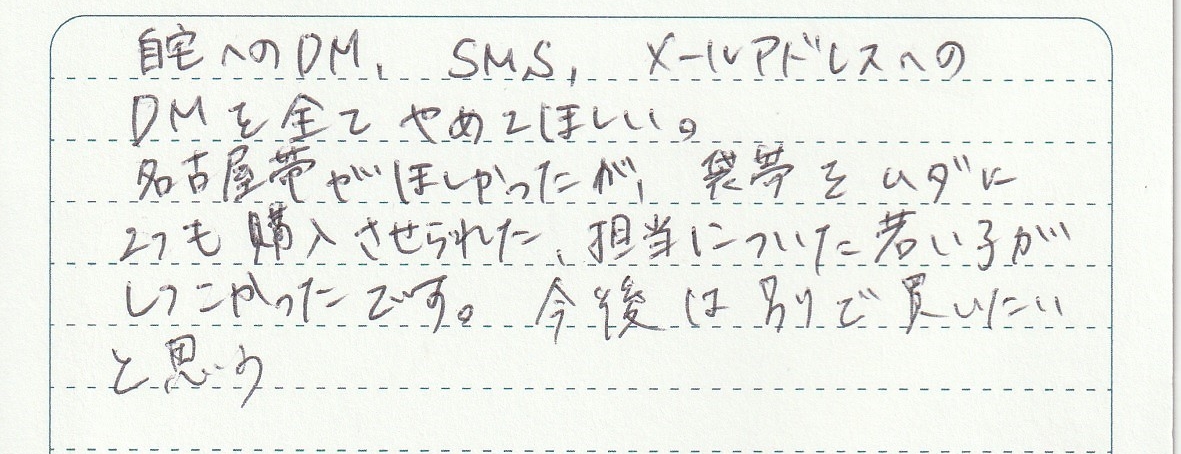 自宅へのDM、SMS、メールアドレスへの
DMを全てやめてほしい。
名古屋帯がほしかったが、袋帯をムダに
2つも購入させられた、担当についた若い子が
しつこかったです。今後は別りで買いたい
と思う